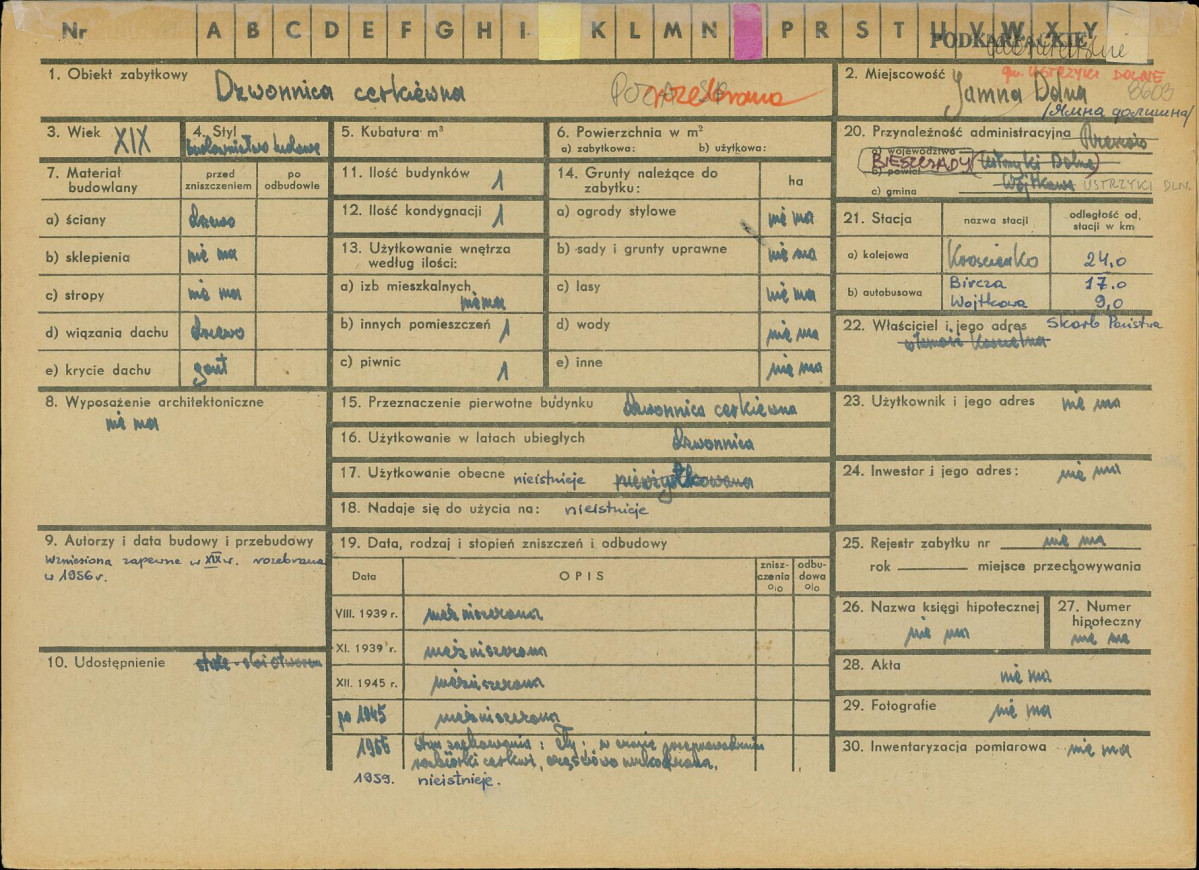 Nr A B C D E F G H I K L M N P R S T U V W X Y
PODKARPACKIE
1. Obiekt zabytkowy Dzwonnica cerkiewna rozebrana
2. Miejscowość gm. USTRZYKI DOLNE
Jamna Dolna 8603
3. Wiek XIX
4. Styl budownictwo ludowe
5. Kubatura m³
6. Powierzchnia w m²
a) zabytkowa: b) użytkowa:
20. Przynależność administracyjna Rzeszów
a) województwo
BIESZCZADY (Ustrzyki Dolne)
b) powiat
c) gmina Wojtkowa USTRZYKI DLN.
7. Materiał budowlany
przed zniszczeniem
po odbudowie
a) ściany drewno
b) sklepienia nie ma
c) stropy nie ma
d) wiązania dachu drewno
e) krycie dachu gont
11. Ilość budynków 1
12. Ilość kondygnacji 1
13. Użytkowanie wnętrza
według ilości:
a) izb mieszkalnych nie ma
b) innych pomieszczeń 1
c) piwnic 1
14. Grunty należące do
zabytku: ha
a) ogrody stylowe nie ma
b) sady i grunty uprawne nie ma
c) lasy nie ma
d) wody nie ma
e) inne nie ma
21. Stacja nazwa stacji odległość od. stacji w km
a) kolejowa Krościenko 24,0
b) autobusowa Bircza 17.0
Wojtkowa 9,0
22. Właściciel i jego adres Skarb Państwa
8. Wyposażenie architektoniczne
nie ma
15. Przeznaczenie pierwotne budynku dzwonnica cerkiewna
16. Użytkowanie w latach ubiegłych dzwonnica
17. Użytkowanie obecne nieistnieje nieużytkowana
18. Nadaje się do użycia na: nieistnieje
23. Użytkownik i jego adres nie ma
24. Inwestor i jego adres: nie ma
9. Autorzy i data budowy i przebudowy
Wzniesiona zapewne w XIX w. rozebrana
w 1956 r.
10. Udostępnienie
19. Data, rodzaj i stopień zniszczeń i odbudowy
Data OPIS znisz-czenia % odbu-dowa %
VIII. 1939 r. niezniszczona
XI. 1939 r. niezniszczona
XII. 1945 r. niezniszczona
po 1945 niezniszczona
1956 stan zachowania: zły; w czasie przeprowadzenia
rozbiórki cerkwi, częściowo uszkodzona.
1959. nieistnieje.
25. Rejestr zabytku nr nie ma
rok miejsce przechowywania
26. Nazwa księgi hipotecznej nie ma
27. Numer hipoteczny nie ma
28. Akta nie ma
29. Fotografie nie ma
30. Inwentaryzacja pomiarowa nie ma